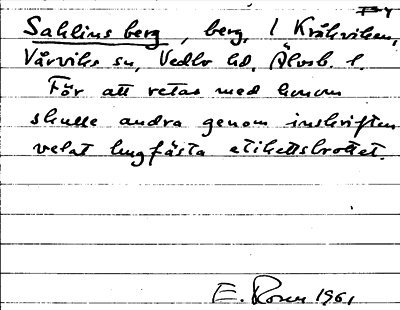 By
Sahlins berg, berg, l Kråkviken,
Vårviks sn, Vedbo hd, Älvsb. l.
För att retas med honom
skulle andra genom inskriften
velat hugfästa etikettsbrottet.
E. Rosen 1961